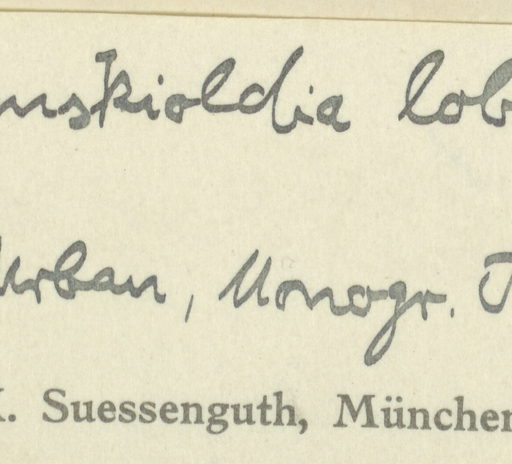 nskioldia lob
Urban, Monogr. T
K. Suessenguth, München